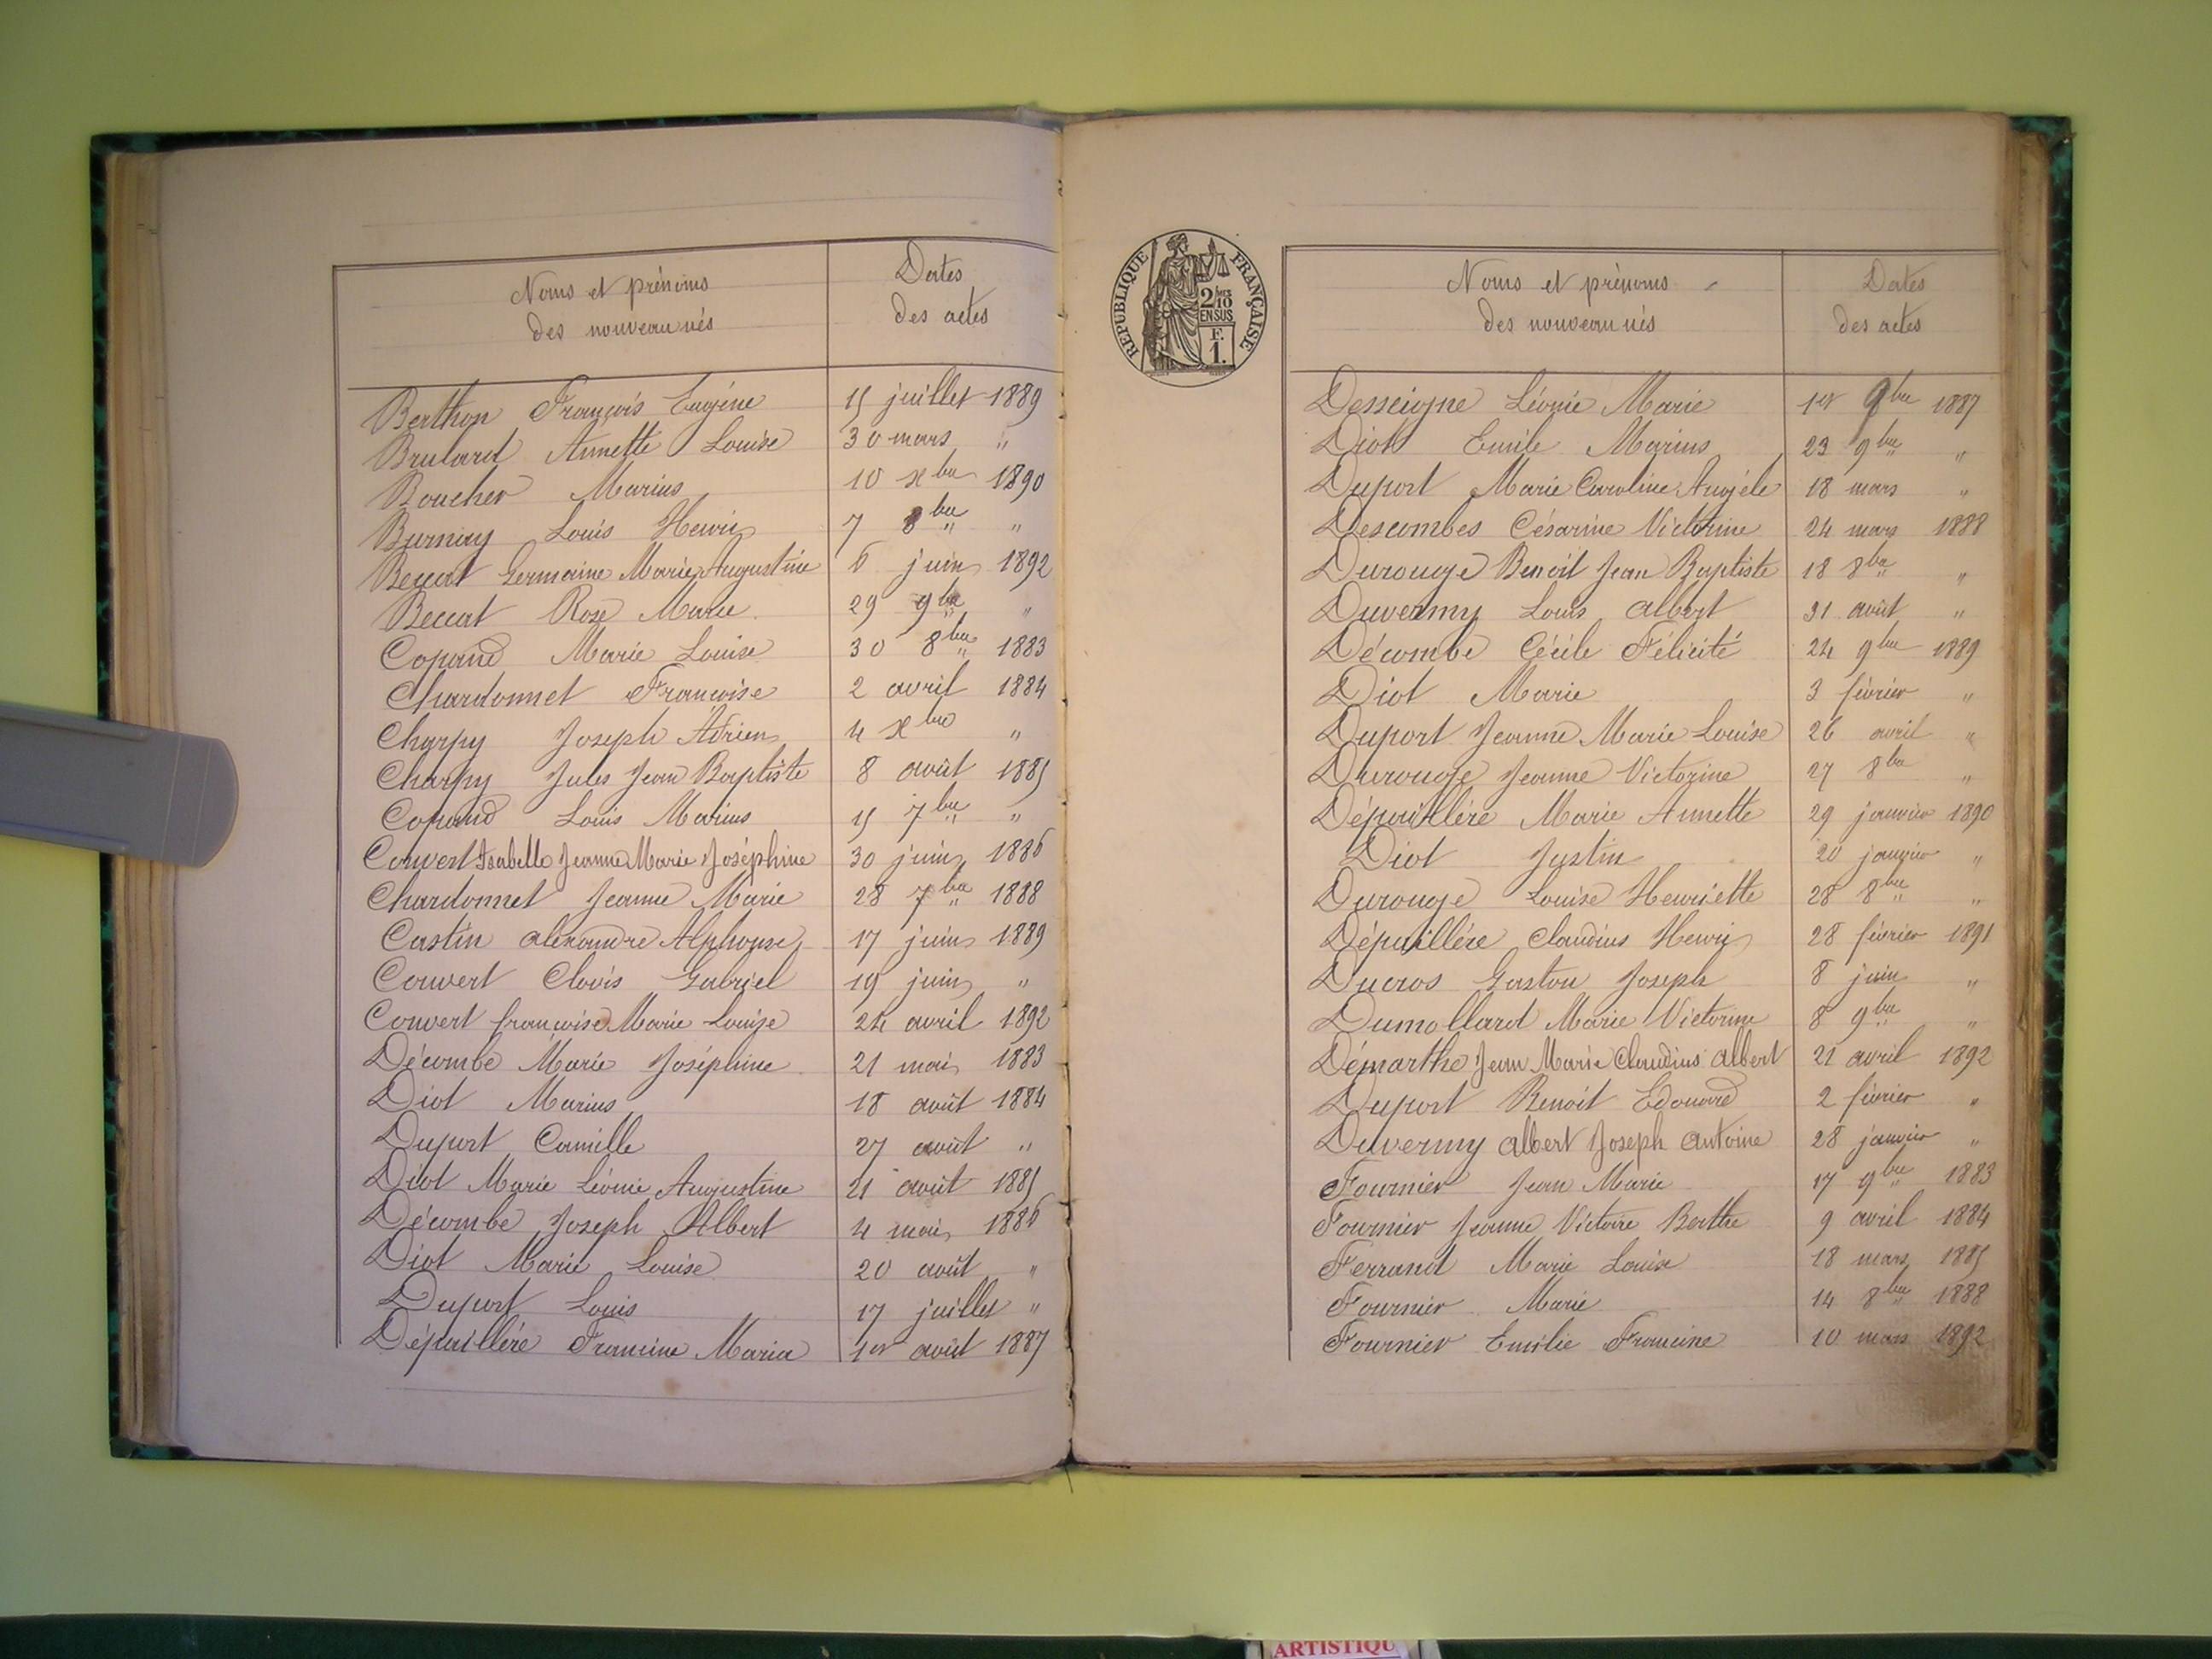 Noms et prénoms
des nouveau nés
Dates
des actes
Berthon François Eugène 15 juillet 1889
Brulard Annette Louise 30 mars "
Boucher Marius 10 xbre 1890
Burnay Louis Henri 7 8bre "
Beccat Germaine Marie Augustine 6 juin 1892
Beccat Rose Marie 29 9bre "
Copand Marie Louise 30 8bre 1883
Chardonnet Françoise 2 avril 1884
Charpy Joseph Adrien 4 xbre "
Charpy Jules Jean Baptiste 8 août 1885
Copand Louis Marius 15 7bre "
Convert Isabelle Jeanne Marie Joséphine 30 juin 1886
Chardonnet Jeanne Marie 28 7bre 1888
Castin alexandre Alphonse 17 juin 1889
Convert Clovis Gabriel 19 juin "
Convert françoise Marie Louise 24 avril 1892
Décombe Marie Joséphine 21 mai 1883
Diot Marius 18 août 1884
Duport Camille 27 août "
Diot Marie Léonie Augustine 21 août 1885
Décombe Joseph Albert 4 mai 1886
Diot Marie Louise 20 août "
Duport Louis 17 juillet "
Dépaillère Francine Maria 1er août 1887
RÉPUBLIQUE FRANÇAISE
2/10mes
EN SUS
F.
1.
Noms et prénoms
des nouveau nés
Dates
des actes
Desseigne Léonie Marie 1er 9bre 1887
Diot Emile Marius 23 9bre "
Duport Marie Caroline Angèle 18 mars "
Descombes Césarine Victorine 24 mars 1888
Durouge Benoit Jean Baptiste 18 8bre "
Duvermy Louis albert 31 août "
Décombe Cécile Félicité 24 9bre 1889
Diot Marie 3 février "
Duport Jeanne Marie Louise 26 avril "
Durouge Jeanne Victorine 27 8bre "
Dépaillère Marie Annette 29 janvier 1890
Diot Justin 20 janvier "
Durouge Louise Henriette 28 8bre "
Dépaillère Claudius Henri 28 février 1891
Ducros Gaston Joseph 8 juin "
Dumollard Marie Victorine 8 9bre "
Démarthe Jean Marie Claudius albert 21 avril 1892
Duport Benoit Edouard 2 février "
Duvermy albert Joseph antoine 28 janvier "
Fournier Jean Marie 17 9bre 1883
Fournier Jeanne Victoire Berthe 9 avril 1884
Ferrand Marie Louise 18 mars 1885
Fournier Marie 14 8bre 1888
Fournier Emilie Francine 10 mars 1892
ARTISTIQU